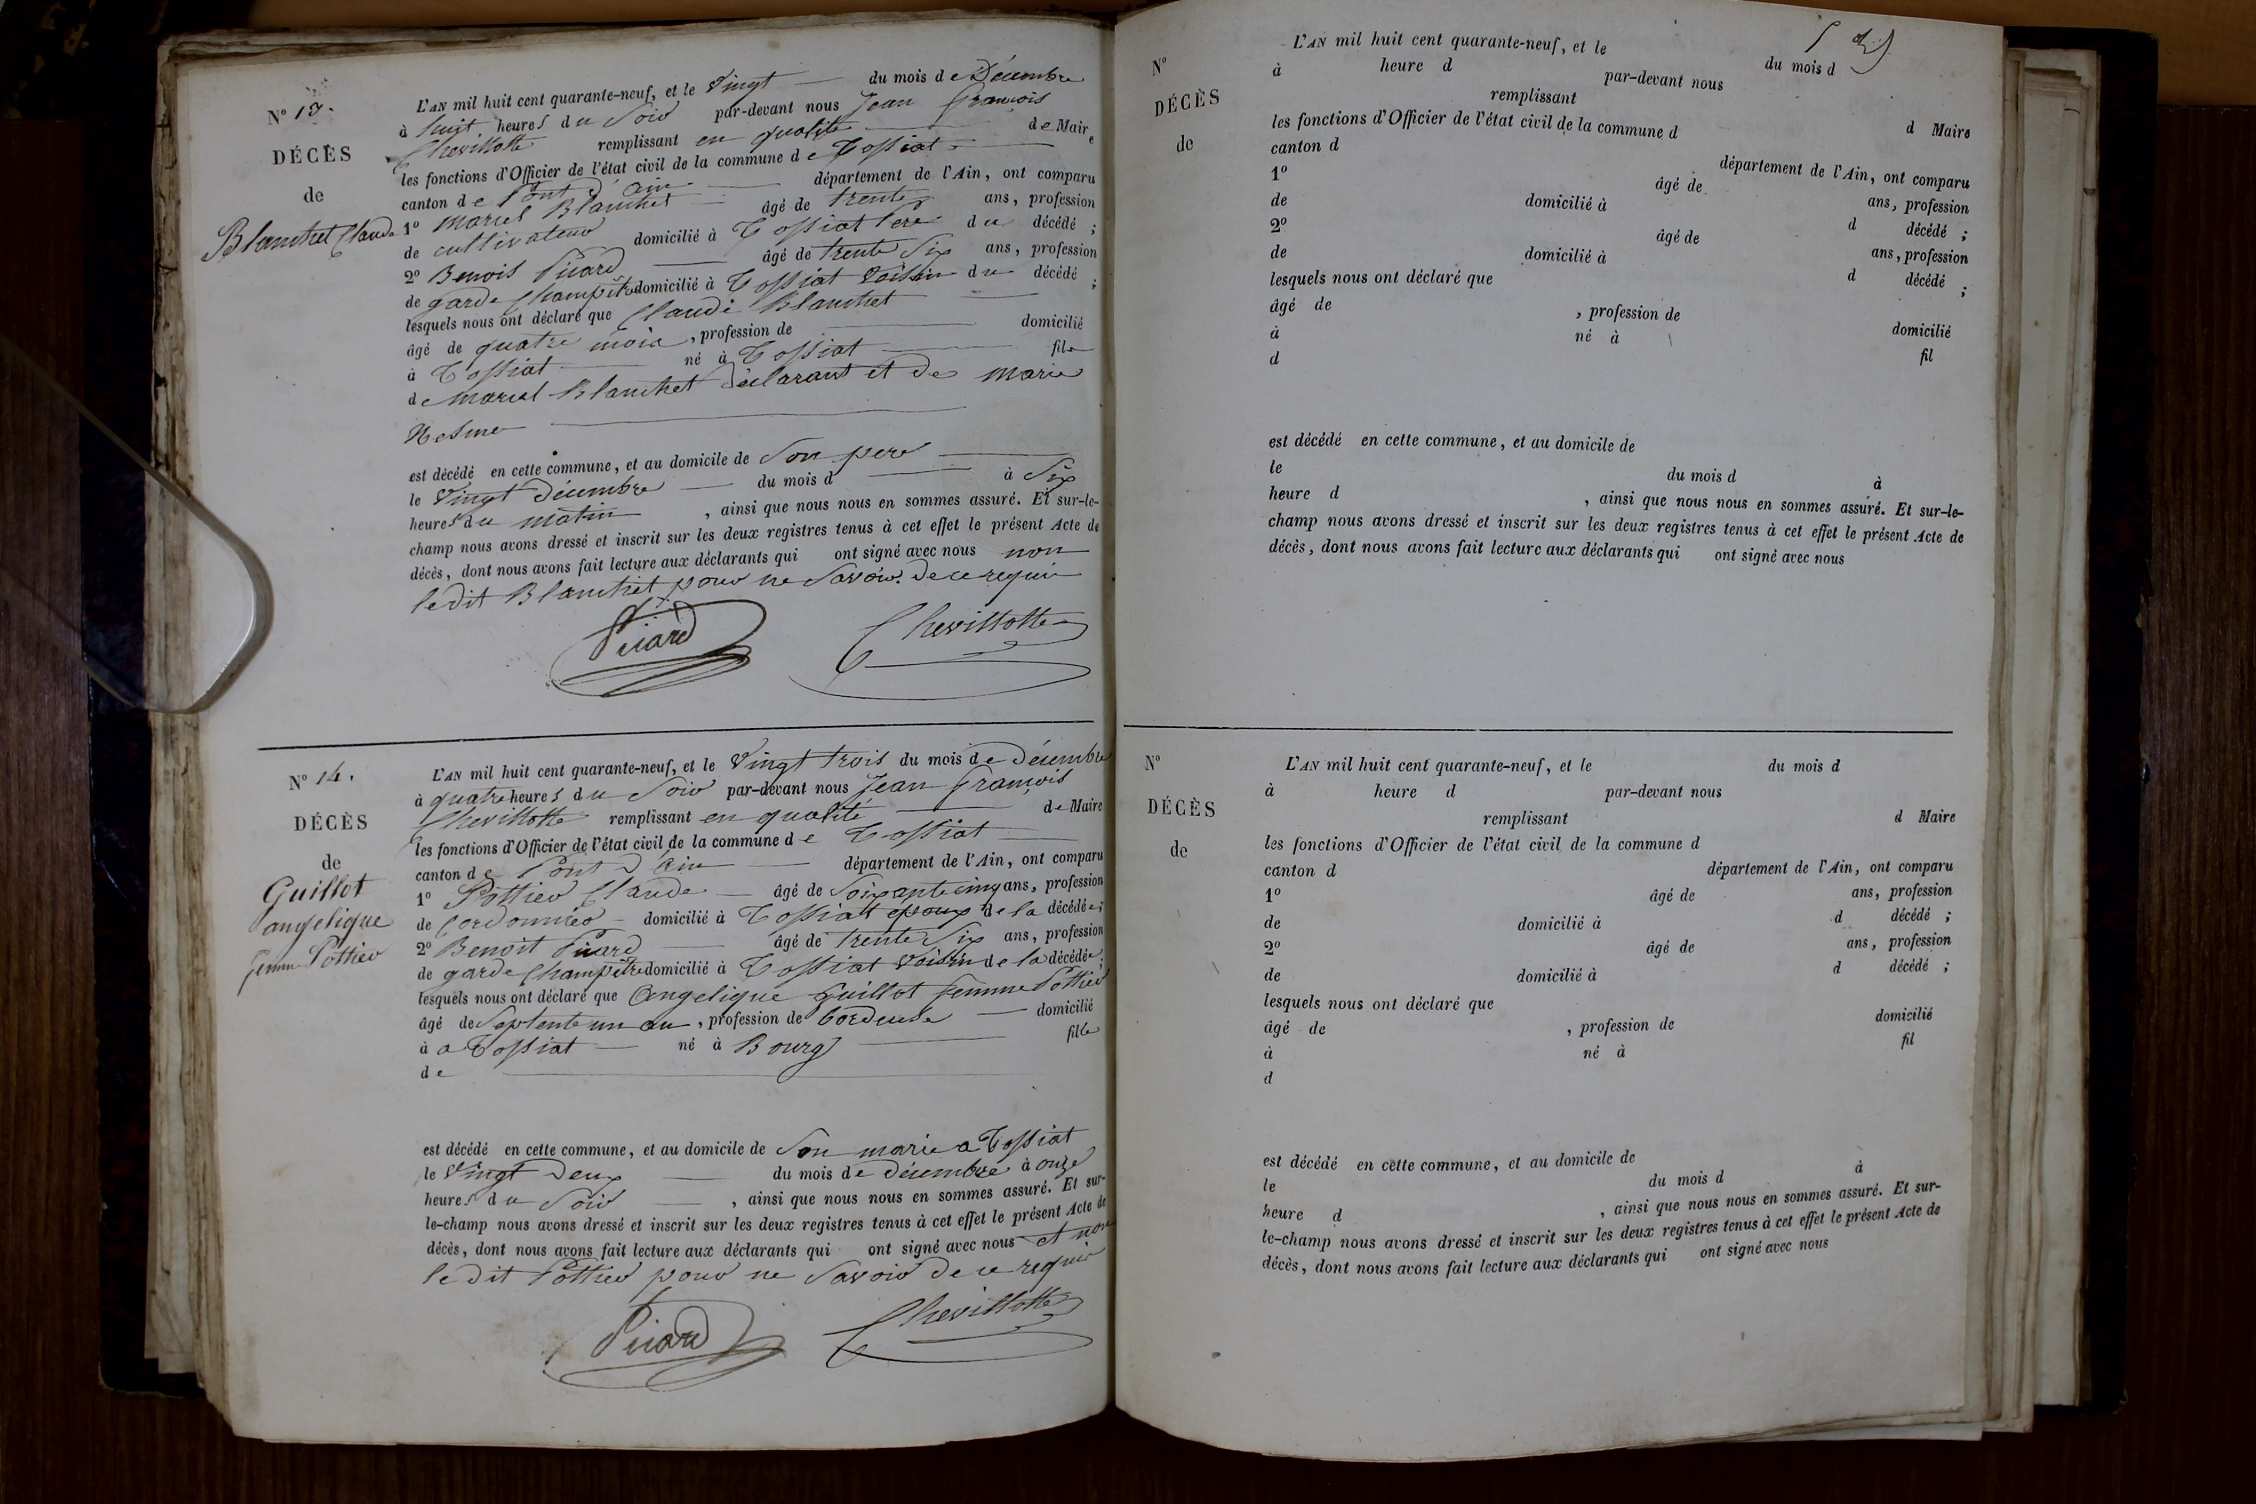 N° 13.
DÉCÈS
de
Blanchet Claude
L'AN mil huit cent quarante-neuf, et le Vingt du mois de Décembre
à huit heures du Soir par-devant nous Jean François
Chevillotte remplissant en qualité de Maire
les fonctions d'Officier de l'état civil de la commune de Tossiat
canton de Pont d'ain département de l'Ain, ont comparu
1° Marcel Blanchet âgé de trente ans, profession
de cultivateur domicilié à Tossiat Père du décédé ;
2° Benois Picard âgé de trente Six ans, profession
de garde Champêtre domicilié à Tossiat Voisin du décédé ;
lesquels nous ont déclaré que Claude Blanchet
âgé de quatre mois , profession de domicilié
à Tossiat né à Tossiat fils
de Marcel Blanchet déclarant et de Marie
Nesme
est décédé en cette commune, et au domicile de Son pere
le Vingt Décembre du mois d à Six
heures du matin , ainsi que nous nous en sommes assuré. Et sur-le-
champ nous avons dressé et inscrit sur les deux registres tenus à cet effet le présent Acte de
décès, dont nous avons fait lecture aux déclarants qui ont signé avec nous non
le dit Blanchet pour ne Savoir de ce requis
Picard Chevillotte
N° 14.
DÉCÈS
de
Guillot
angelique
femme Pottier
L'AN mil huit cent quarante-neuf, et le Vingt trois du mois de Décembre
à quatre heures du Soir par-devant nous Jean François
Chevillotte remplissant en qualité de Maire
les fonctions d'Officier de l'état civil de la commune de Tossiat
canton de Pont d'Ain département de l'Ain, ont comparu
1° Pottier Claude âgé de Soixante cinq ans, profession
de Cordonnier domicilié à Tossiat époux de la décédée ;
2° Benoit Picard âgé de trente Six ans, profession
de garde Champêtre domicilié à Tossiat Voisin de la décédée ;
lesquels nous ont déclaré que Angelique Guillot femme Pottier
âgé de Septente un an , profession de bordeuse domicilié
à a Tossiat né à Bourg fille
de
est décédé en cette commune, et au domicile de Son marie a Tossiat
le Vingt Deux du mois de décembre à onze
heures du Soir , ainsi que nous nous en sommes assuré. Et sur-
le-champ nous avons dressé et inscrit sur les deux registres tenus à cet effet le présent Acte de
décès, dont nous avons fait lecture aux déclarants qui ont signé avec nous et non
le dit Pottier pour ne Savoir de ce requis
Picard Chevillotte
N°
DÉCÈS
de
L'AN mil huit cent quarante-neuf, et le du mois d
à heure d par-devant nous
remplissant d Maire
les fonctions d'Officier de l'état civil de la commune d
canton d département de l'Ain, ont comparu
1° âgé de ans, profession
de domicilié à d décédé ;
2° âgé de ans, profession
de domicilié à d décédé ;
lesquels nous ont déclaré que
âgé de , profession de domicilié
à né à fil
d
est décédé en cette commune, et au domicile de
le du mois d à
heure d , ainsi que nous nous en sommes assuré. Et sur-le-
champ nous avons dressé et inscrit sur les deux registres tenus à cet effet le présent Acte de
décès, dont nous avons fait lecture aux déclarants qui ont signé avec nous
N°
DÉCÈS
de
L'AN mil huit cent quarante-neuf, et le du mois d
à heure d par-devant nous
remplissant d Maire
les fonctions d'Officier de l'état civil de la commune d
canton d département de l'Ain, ont comparu
1° âgé de ans, profession
de domicilié à d décédé ;
2° âgé de ans, profession
de domicilié à d décédé ;
lesquels nous ont déclaré que
âgé de , profession de domicilié
à né à fil
d
est décédé en cette commune, et au domicile de
le du mois d à
heure d , ainsi que nous nous en sommes assuré. Et sur-
le-champ nous avons dressé et inscrit sur les deux registres tenus à cet effet le présent Acte de
décès, dont nous avons fait lecture aux déclarants qui ont signé avec nous